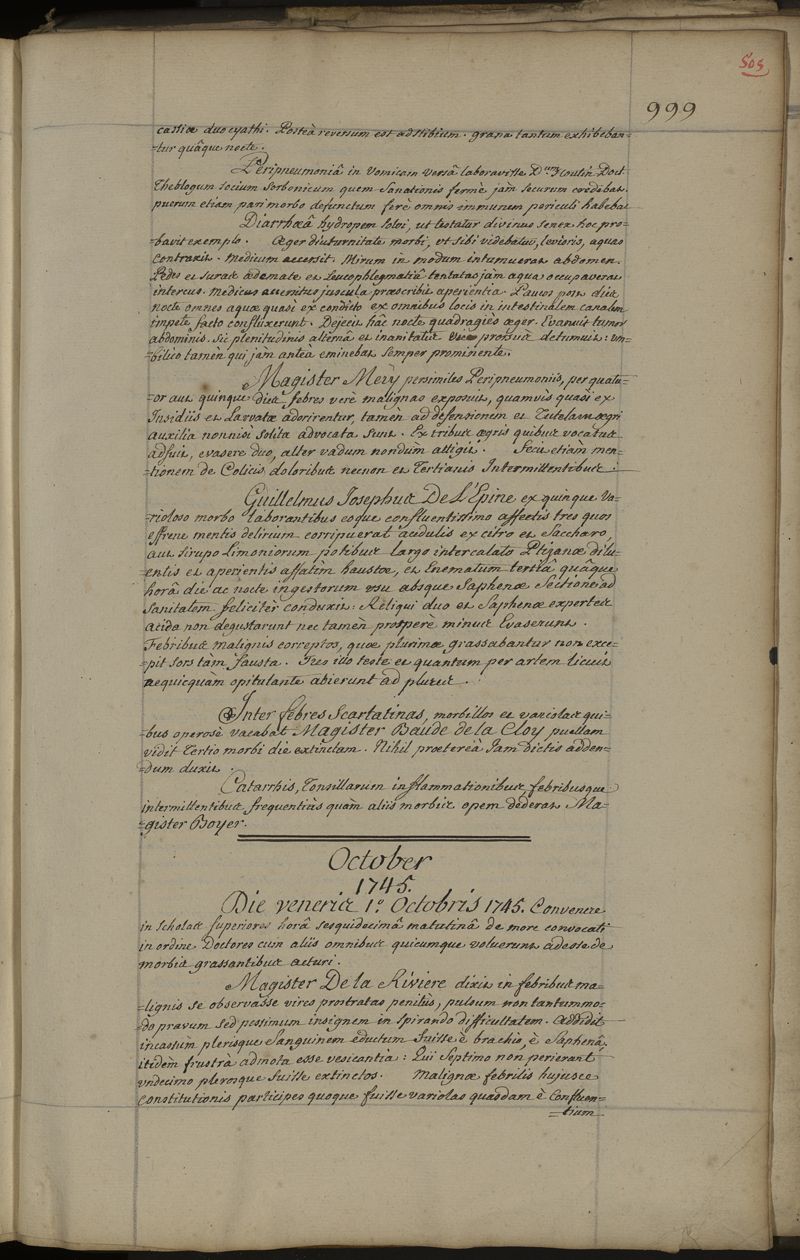 503
999
cassiæ duo cyathi. Posteà reversum est ad stibium. grana tantum exhibeban=
=tur quâque nocte.
Peripneumoniâ in vomicam versâ laboravisse D.um Houlin Doct
Theblogum socium sorbonicum quem sanationis fermè jam securum credebat.
puerum etiam pari morbo defunctum ferè omnis immunem periculi habebat
Diarrhœâ hydropem solvi, ut testatur divinus senex hoc pro=
=bavit exemplo. Æger diuturnitate morbi, ut sibi videbatur, levioris, aquas
contraxit. Medicum accersit. Mirum in modum intumuerat abdomen.
Pedes et suras œdemate et Leucophlegmatiâ tentatas jam aqua occupaverat
intercus. Medicus accersitus juscula præscribit aperientia. Paucos post dies
nocte omnes aquæ quasi ex condicto ex omnibus locis in intestinalem canalem
impetu facto confluxerunt. Dejecit hâc nocte quadragies æger. Evanuit tumor
abdominis. Sic plenitudinis alternâ et inanitatis vice prorsus detumuit: um=
=bilico tamèn qui jam anteà eminebat semper prominente.
Magister Mery persimiles Peripneumoniis, per quatu=
=or aut quinque dies febres verè malignas exposuit, quamvis quasi ex
Insidiis et Larvatæ adorirentur, tamèn ad defensionem et Tutelam ægri
auxilia nonnisi solita advocata sunt. Ex tribus ægris quibus vocatus
adfuit, evasere duo, alter vadum nondùm attigit. Fecit etiàm men=
=tionem de Colicis doloribus necnon et Tertianis Intermittentibus.
Guillelmus Josephus De L'Epine ex quinque Va=
=rioloso morbo laborantibus eoque confluentissimo affectis tres quos
effrene mentis delirium corripuerat acidulis ex citro et Saccharo,
aut sirupo Limoniorum potibus largo intercalato Ptizanæ dilu=
=entis et aperientis affatim haustæ, et Enematum tertiâ quâque
horâ die ac nocte ingestorum usu absque Saphenæ Sectione ad
Sanitatem feliciter conduxit: Reliqui duo et Saphenæ expertes
acida non degustarunt nec tamèn prospere minus Evaserunt.
Febribus malignis correptos, quæ plurimæ grassabantur non exce=
=pit sors tàm fausta. Tres ipso teste et quantum per artem licuit
nequicquàm opitulante abierunt ad plures.
Inter febres Scarlatinas, morbillos et variolas qui=
=bus operosè vacabat Magister Baude de la Cloy puellam
vidit Tertio morbi die extinctam. Nihil prætereà Jam dictis adden=
=dum duxit.
Catarrhis, Tonsillarum inflammationibus, febribusque
intermittentibus frequentiùs quàm aliis morbis opem dederat Ma=
=gister Boyer.
October
1745.
Die veneris 1.° Octobris 1745. Convenere
in scholas superiores horâ sesquidecimâ matutinâ de more convocati
in ordine Doctores cum aliis omnibus quicumque voluerunt adesse de
morbis grassantibus acturi.
Magister De la Riviere dixit in febribus ma=
=lignis se observasse vires prostratas penitùs, pulsum non tantummo=
=do pravum sed pessimum insignem in spirando difficultatem. Addidit
incassùm plerisque Sanguinem eductum fuisse è brachio, è Saphenâ,
itidem frustrà admota esse vesicantia: Qui Septimo non perierant
undecimo plerosque fuisse extinctos. Malignæ febrilis hujusce
constitutionis participes quoque fuisse variolas quasdam è Confluen=
=tium